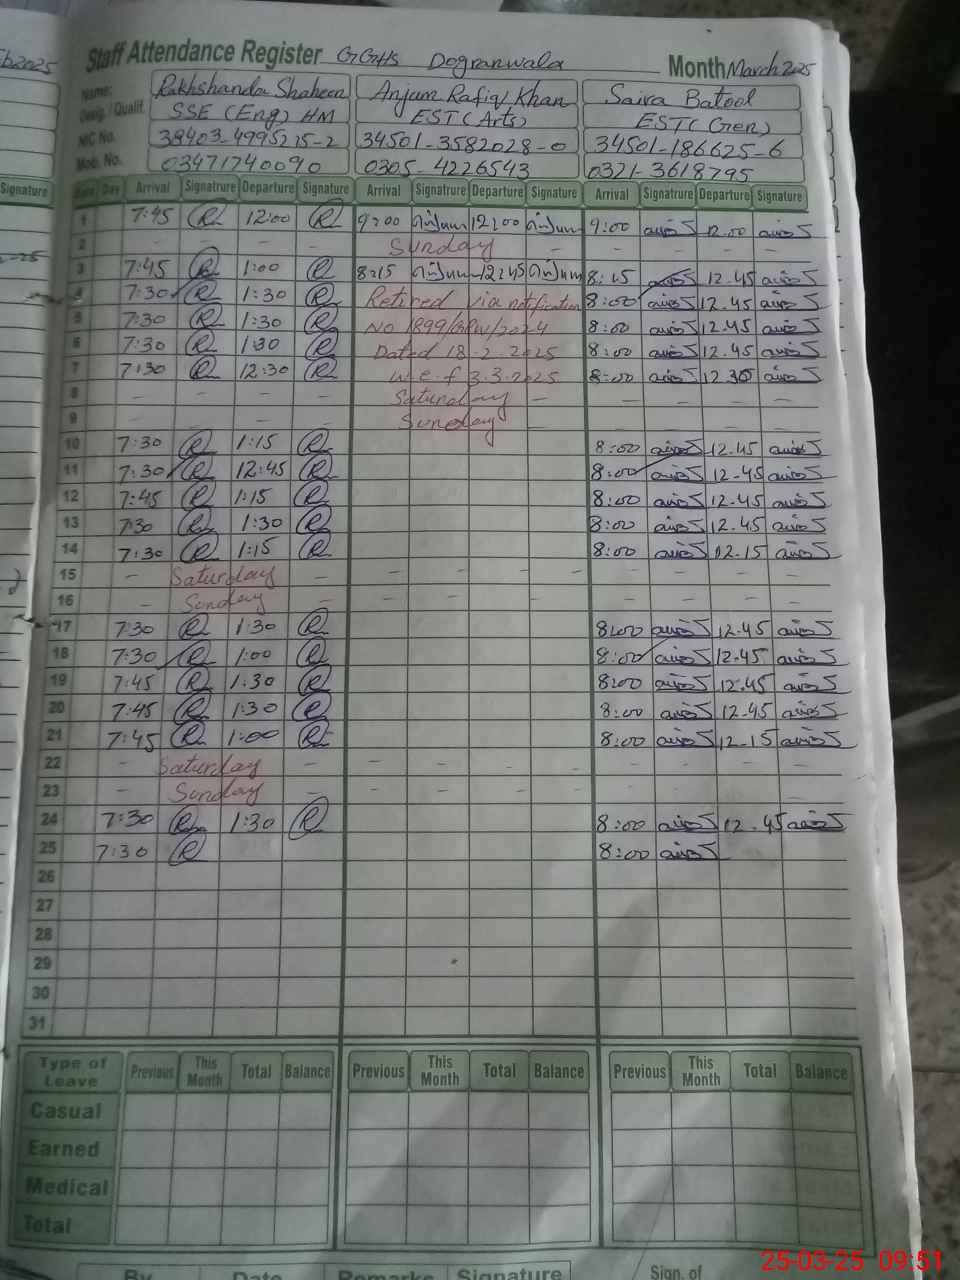 Feb2025
Staff Attendance Register GGHS Dogranwala Month March 2025
Name: Rakhshanda Shaheen Anjum Rafiq Khan Saira Batool
Desig. / Qualif. SSE (Eng) HM EST (Arts) EST (Gen)
NIC No. 38403-4995215-2 34501-3582028-0 34501-186625-6
Mob. No. 03471740090 0305-4226543 0321-3618795
Signature Date Day Arrival Signatrure Departure Signature Arrival Signatrure Departure Signature Arrival Signatrure Departure Signature
1 7:45 R 12:00 R 9:00 انجم 12:00 انجم 9:00 12.00
2 - - - - Sunday - - - - -
3 7:45 R 1:00 R 8:15 انجم 12:45 انجم 8:15 12.45
4 7:30 R 1:30 R Retired via notification 8:00 12.45
5 7:30 R 1:30 R No 1899/GRW/2024 8:00 12.45
6 7:30 R 1:30 R Dated 18.2.2025 8:00 12.45
7 7:30 R 12:30 R w.e.f 3.3.2025 8:00 12.30
8 - - - - Saturday -
9 - - - - Sunday -
10 7:30 R 1:15 R 8:00 12.45
11 7:30 R 12:45 R 8:00 12.45
12 7:45 R 1:15 R 8:00 12.45
13 7:30 R 1:30 R 8:00 12.45
14 7:30 R 1:15 R 8:00 12.15
15 - Saturday - - - - -
16 - Sunday - - - - -
17 7:30 R 1:30 R 8:00 12.45
18 7:30 R 1:00 R 8:00 12.45
19 7:45 R 1:30 R 8:00 12.45
20 7:45 R 1:30 R 8:00 12.45
21 7:45 R 1:00 R 8:00 12.15
22 - Saturday - - - - - - - - -
23 - Sunday - - - - - - - - -
24 7:30 R 1:30 R 8:00 12.45
25 7:30 R 8:00
26
27
28
29
30
31
Type of Leave Previous This Month Total Balance Previous This Month Total Balance Previous This Month Total Balance
Casual
Earned
Medical
Total
By Date Remarks Signature Sign. of
25-03-25 09:51